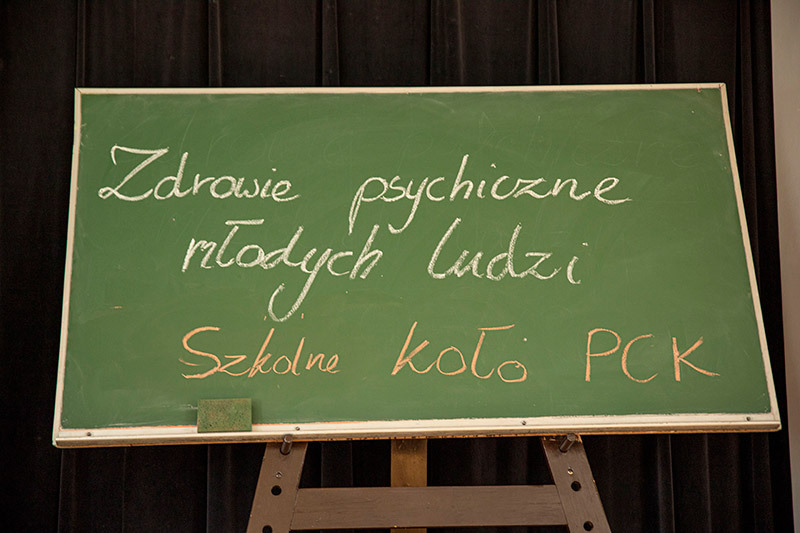 Zdrowie psychiczne
młodych ludzi
Szkolne koło PCK